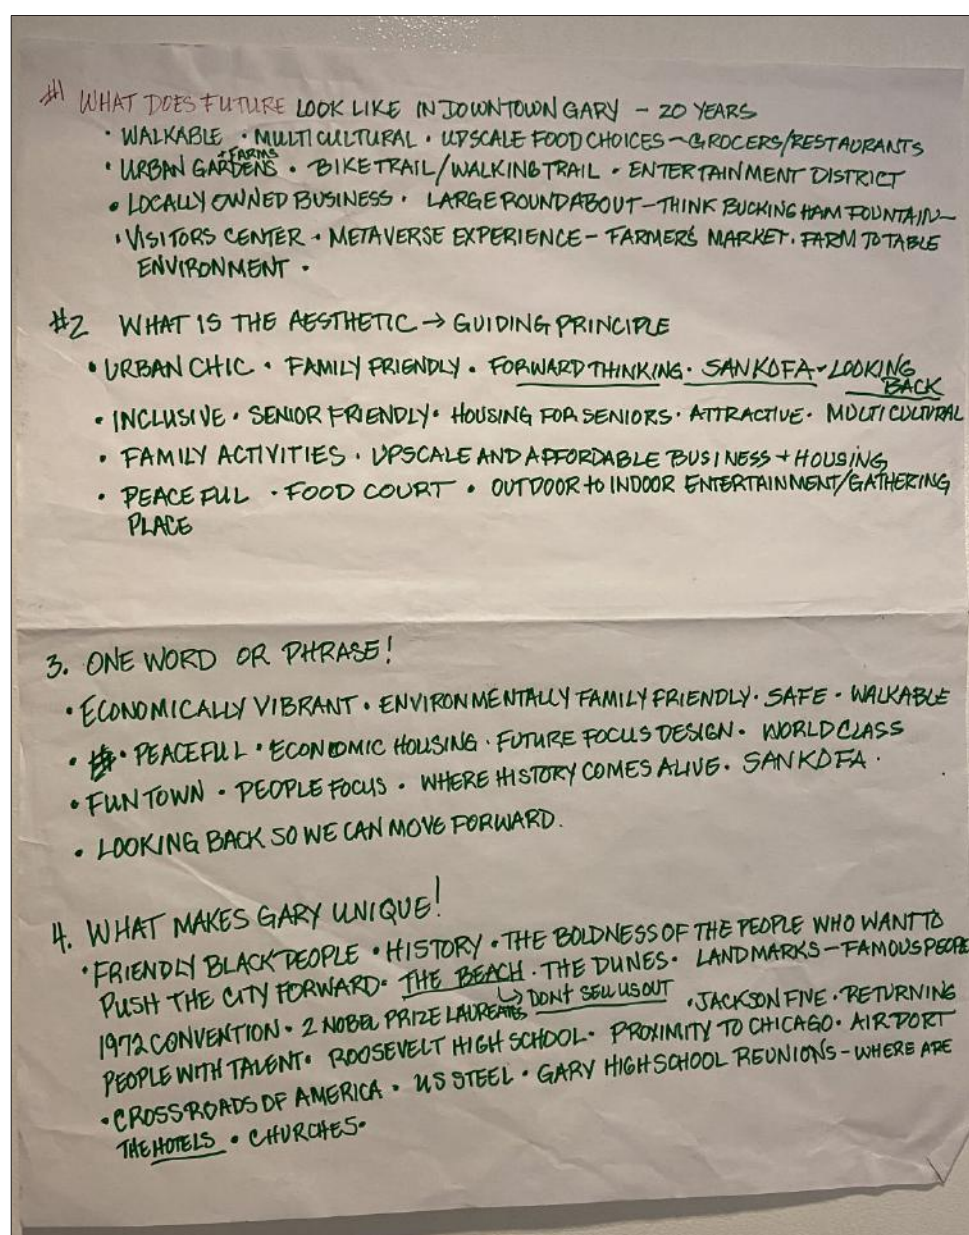 #1 WHAT DOES FUTURE LOOK LIKE IN DOWNTOWN GARY – 20 YEARS
• WALKABLE • MULTICULTURAL • UPSCALE FOOD CHOICES – GROCERS/RESTAURANTS
+ FARMS
• URBAN GARDENS • BIKE TRAIL/WALKING TRAIL • ENTERTAINMENT DISTRICT
• LOCALLY OWNED BUSINESS • LARGE ROUNDABOUT – THINK BUCKINGHAM FOUNTAIN –
• VISITORS CENTER • METAVERSE EXPERIENCE – FARMER'S MARKET • FARM TO TABLE
ENVIRONMENT •
#2 WHAT IS THE AESTHETIC → GUIDING PRINCIPLE
• URBAN CHIC • FAMILY FRIENDLY • FORWARD THINKING • SANKOFA – LOOKING
BACK
• INCLUSIVE • SENIOR FRIENDLY • HOUSING FOR SENIORS • ATTRACTIVE • MULTICULTURAL
• FAMILY ACTIVITIES • UPSCALE AND AFFORDABLE BUSINESS + HOUSING
• PEACEFUL • FOOD COURT • OUTDOOR to INDOOR ENTERTAINMENT/GATHERING
PLACE
3. ONE WORD OR PHRASE!
• ECONOMICALLY VIBRANT • ENVIRONMENTALLY FAMILY FRIENDLY • SAFE • WALKABLE
• PEACEFUL • ECONOMIC HOUSING • FUTURE FOCUS DESIGN • WORLD CLASS
• FUN TOWN • PEOPLE FOCUS • WHERE HISTORY COMES ALIVE • SANKOFA •
• LOOKING BACK SO WE CAN MOVE FORWARD.
4. WHAT MAKES GARY UNIQUE!
• FRIENDLY BLACK PEOPLE • HISTORY • THE BOLDNESS OF THE PEOPLE WHO WANT TO
PUSH THE CITY FORWARD • THE BEACH • THE DUNES • LANDMARKS – FAMOUS PEOPLE
↳ DON'T SELL US OUT
1972 CONVENTION • 2 NOBEL PRIZE LAUREATES • JACKSON FIVE • RETURNING
PEOPLE WITH TALENT • ROOSEVELT HIGH SCHOOL • PROXIMITY TO CHICAGO • AIRPORT
• CROSSROADS OF AMERICA • US STEEL • GARY HIGH SCHOOL REUNIONS – WHERE ARE
THE HOTELS • CHURCHES •